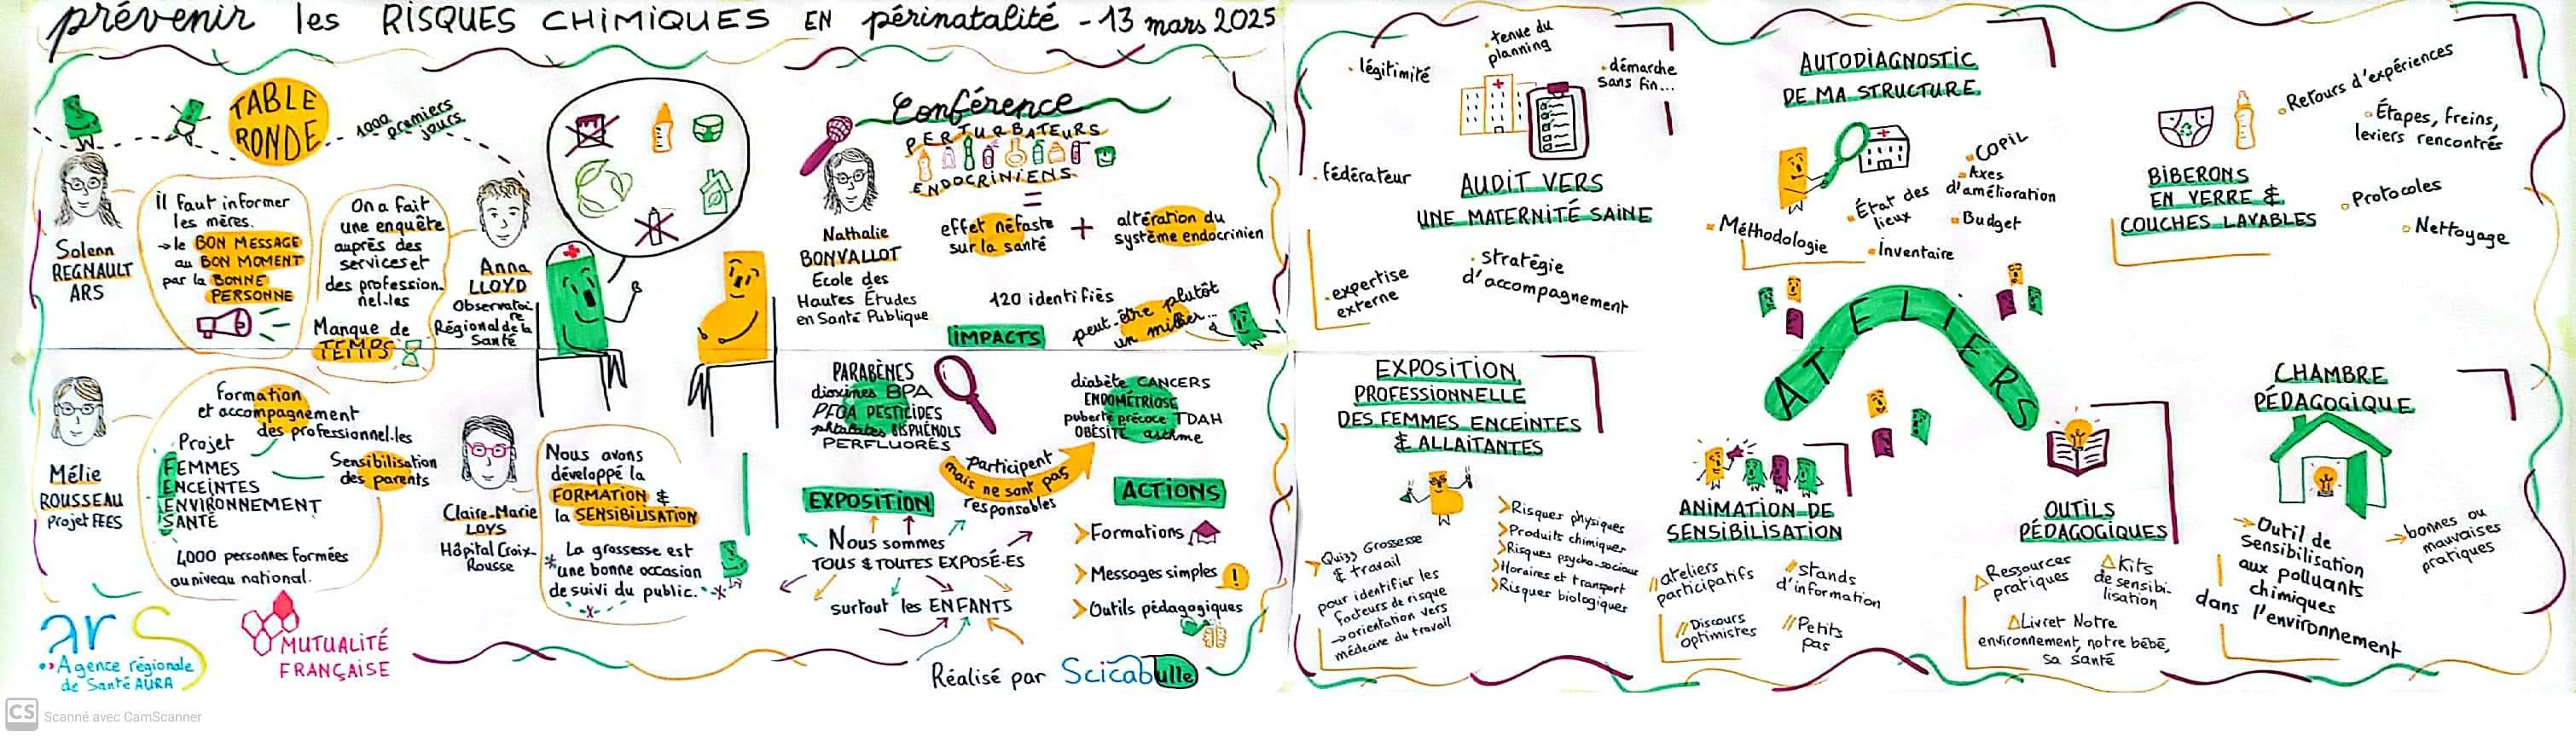 prévenir les RISQUES CHIMIQUES EN périnatalité - 13 mars 2025
TABLE
RONDE
1000 premiers
jours
Solenn
REGNAULT
ARS
il faut informer
les mères.
→ le BON MESSAGE
au BON MOMENT
par la BONNE
PERSONNE
On a fait
une enquête
auprès des
services et
des profession-
nel·les
Manque de
TEMPS
Anna
LLOYD
Observatoi
re
Régional de la
Santé
Mélie
ROUSSEAU
Projet FEES
Formation
et accompagnement
des professionnel·les
Projet
FEMMES
ENCEINTES
ENVIRONNEMENT
SANTÉ
Sensibilisation
des parents
4000 personnes formées
au niveau national.
Claire-Marie
LOYS
Hôpital Croix-
Rousse
Nous avons
développé la
FORMATION &
la SENSIBILISATION
* La grossesse est
une bonne occasion
de suivi du public.
Conférence
PERTURBATEURS
ENDOCRINIENS
=
effet néfaste
sur la santé
+
altération du
système endocrinien
Nathalie
BONVALLOT
Ecole des
Hautes Études
en Santé Publique
120 identifiés
peut-être plutôt
un millier...
IMPACTS
PARABÈNES
dioxines BPA
PFOA PESTICIDES
phtalates BISPHÉNOLS
PERFLUORÉS
Participent
mais ne sont pas
responsables
diabète CANCERS
ENDOMÉTRIOSE
puberté précoce TDAH
OBÉSITÉ asthme
EXPOSITION
Nous sommes
TOUS & TOUTES EXPOSÉ·ES
surtout les ENFANTS
ACTIONS
Formations
Messages simples !
Outils pédagogiques
ars
Agence régionale
de Santé AURA
MUTUALITÉ
FRANÇAISE
Réalisé par Scicabulle
. légitimité
. tenue du
planning
. démarche
sans fin...
. fédérateur
AUDIT VERS
UNE MATERNITÉ SAINE
. expertise
externe
. stratégie
d'accompagnement
AUTODIAGNOSTIC
DE MA STRUCTURE
Méthodologie
État des
lieux
COPIL
Axes
d'amélioration
Budget
Inventaire
BIBERONS
EN VERRE &
COUCHES LAVABLES
Retours d'expériences
Étapes, freins,
leviers rencontrés
Protocoles
Nettoyage
ATELIERS
EXPOSITION
PROFESSIONNELLE
DES FEMMES ENCEINTES
& ALLAITANTES
Quizz Grossesse
& travail
pour identifier les
facteurs de risque
→ orientation vers
médecine du travail
Risques physiques
Produits chimiques
Risques psycho-sociaux
Horaires et transport
Risques biologiques
ANIMATION DE
SENSIBILISATION
// ateliers
participatifs
// stands
d'information
// Discours
optimistes
// Petits
pas
OUTILS
PÉDAGOGIQUES
Ressources
pratiques
Kits
de sensibi-
lisation
Livret Notre
environnement, notre bébé,
sa santé
CHAMBRE
PÉDAGOGIQUE
→ Outil de
Sensibilisation
aux polluants
chimiques
dans l'environnement
→ bonnes ou
mauvaises
pratiques
CS Scanné avec CamScanner